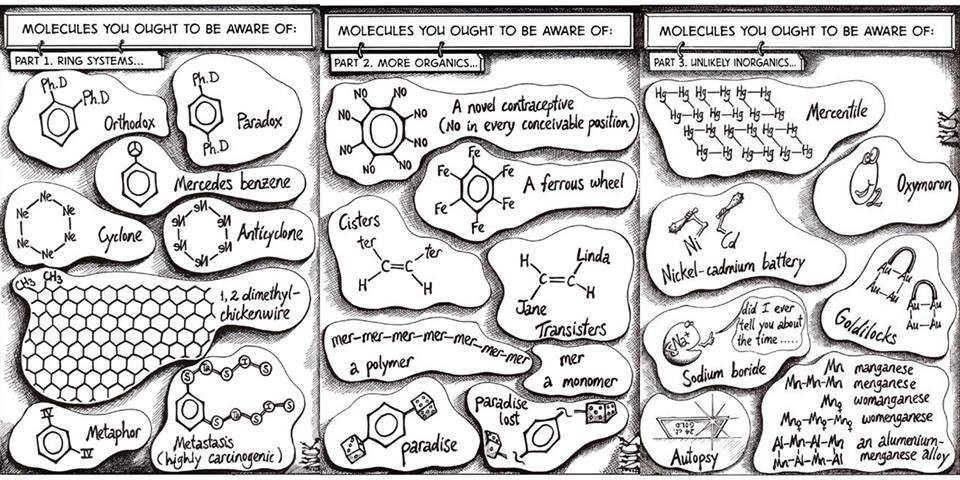 MOLECULES YOU OUGHT TO BE AWARE OF:
PART 1. RING SYSTEMS...
Ph.D
Ph.D
Orthodox
Ph.D
Ph.D
Paradox
Mercedes benzene
Ne
Ne Ne
Ne Ne
Ne
Cyclone
Ne
Ne Ne
Ne Ne
Ne
Anticyclone
CH3 CH3
1,2 dimethyl-
chickenwire
IV
IV
Metaphor
S Ta S I S
S Ta S I S
Metastasis
(highly carcinogenic)
MOLECULES YOU OUGHT TO BE AWARE OF:
PART 2. MORE ORGANICS...
NO NO
NO NO
NO NO
NO NO
A novel contraceptive
(No in every conceivable position)
Fe
Fe Fe
Fe Fe
Fe
A ferrous wheel
Cisters
ter ter
C=C
H H
H Linda
C=C
Jane H
Transisters
mer-mer-mer-mer-mer-mer-mer
a polymer
mer
a monomer
paradise
paradise
lost
MOLECULES YOU OUGHT TO BE AWARE OF:
PART 3. UNLIKELY INORGANICS...
Hg Hg Hg Hg Hg Hg
Hg Hg Hg Hg Hg Hg
Hg Hg Hg Hg Hg Hg
Hg Hg Hg Hg Hg Hg
Mercentile
Oxymoron
Ni Cd
Nickel-cadmium battery
Au-Au
Au-Au
Au-Au
Au-Au
Goldilocks
Na+
did I ever
tell you about
the time.....
Sodium boride
24 ct.
GOLD
Autopsy
Mn manganese
Mn-Mn-Mn menganese
Mn♀ womanganese
Mn♀-Mn♀-Mn♀ womenganese
Al-Mn-Al-Mn an alumenium-
Mn-Al-Mn-Al menganese alloy